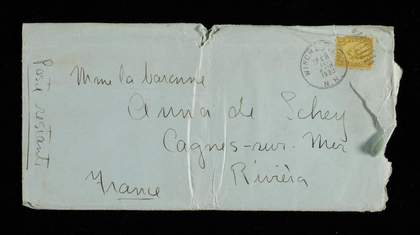 Poste restante
Mme la baronne
Anna de Schey
Cagnes-sur-Mer
Riviera
France
N.H.